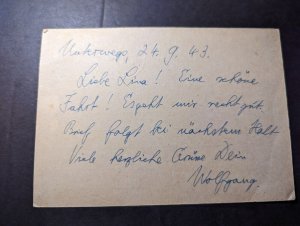 Unterwegs 24. 9. 43.
Liebe Lina! Eine schöne
Fahrt! Es geht mir recht gut
Brief folgt bei nächstem Halt
Viele herzliche Grüße Dein
Wolfgang.